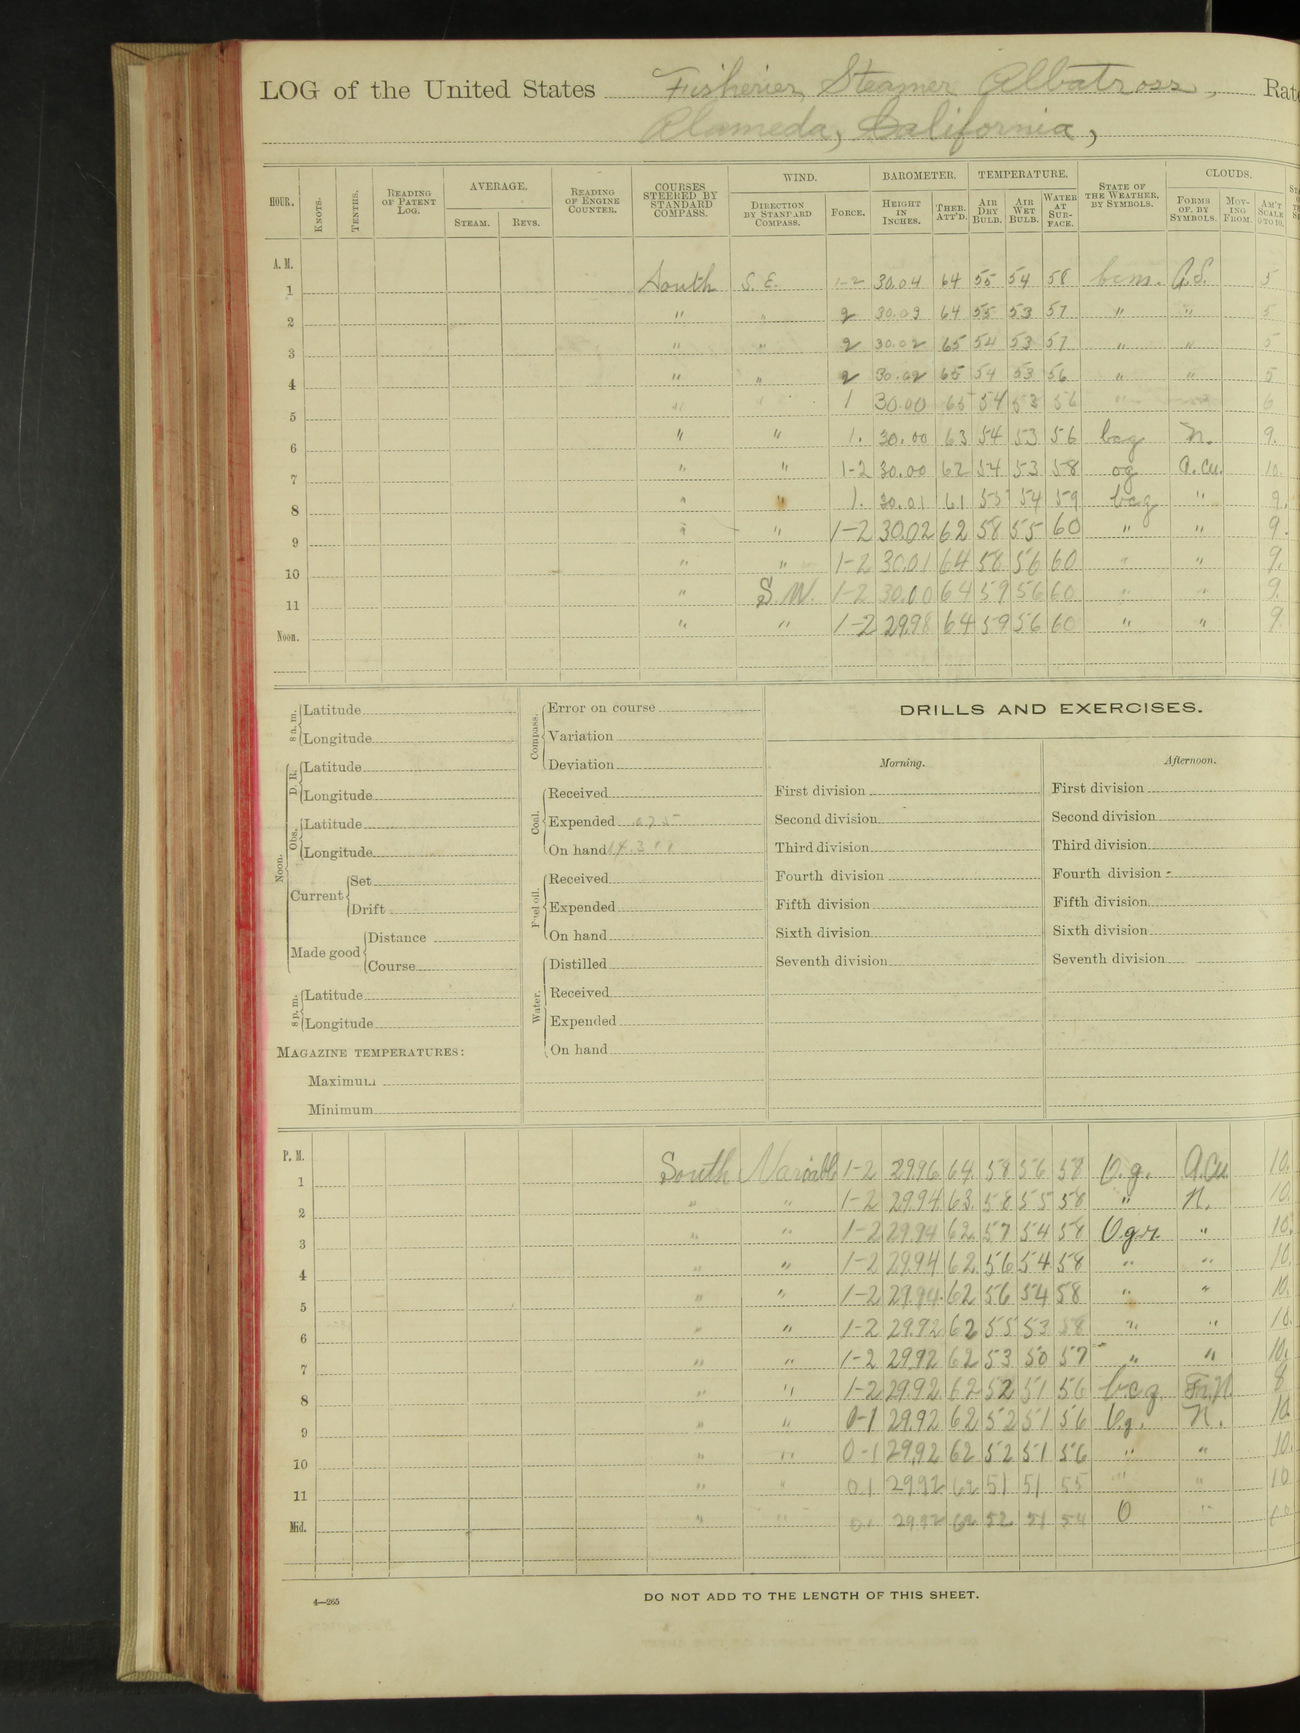 LOG of the United States Fisheries Steamer Albatross, Rate
Alameda, California,
HOUR. KNOTS. TENTHS. READING OF PATENT LOG. AVERAGE. STEAM. REVS. READING OF ENGINE COUNTER. COURSES STEERED BY STANDARD COMPASS. WIND. DIRECTION BY STANDARD COMPASS. FORCE. BAROMETER. HEIGHT IN INCHES. THER. ATT'D. TEMPERATURE. AIR DRY BULB. AIR WET BULB. WATER AT SURFACE. STATE OF THE WEATHER, BY SYMBOLS. CLOUDS. FORMS OF, BY SYMBOLS. MOVING FROM. AM'T SCALE 0 TO 10.
A. M.
1 South S. E. 1-2 30.04 64 55 54 58 bcm. A.S. 5
2 " " 2 30.03 64 55 53 57 " " 5
3 " " 2 30.02 65 54 53 57 " " 5
4 " " 2 30.02 65 54 53 56 " " 5
5 " " 1 30.00 65 54 53 56 " 6
6 " " 1. 30.00 63 54 53 56 bcg N. 9.
7 " " 1-2 30.00 62 54 53 58 og A.Cu. 10.
8 " " 1. 30.01 61 55 54 59 bcg " 9.
9 " " 1-2 30.02 62 58 55 60 " " 9.
10 " " 1-2 30.01 64 58 56 60 " " 9.
11 " S.W. 1-2 30.00 64 59 56 60 " " 9.
Noon. " " 1-2 29.98 64 59 56 60 " " 9.
8 a. m. Latitude
Longitude
Noon. D. R. Latitude
Longitude
Obs. Latitude
Longitude
Current Set
Drift
Made good Distance
Course
8 p. m. Latitude
Longitude
MAGAZINE TEMPERATURES:
Maximum
Minimum
Compass. Error on course
Variation
Deviation
Coal. Received
Expended
On hand
Fuel oil. Received
Expended
On hand
Water. Distilled
Received
Expended
On hand
DRILLS AND EXERCISES.
Morning.
First division
Second division
Third division
Fourth division
Fifth division
Sixth division
Seventh division
Afternoon.
First division
Second division
Third division
Fourth division
Fifth division
Sixth division
Seventh division
P. M.
1 South Variable 1-2 29.96 64. 58 56 58 O.g. A.Cu. 10.
2 " " 1-2 29.94 63. 58 55 58 " N. 10.
3 " " 1-2 29.94 62. 57 54 58 O.g.r. " 10.
4 " " 1-2 29.94 62. 56 54 58 " " 10.
5 " " 1-2 29.94 62 56 54 58 " " 10.
6 " " 1-2 29.92 62 55 53 58 " " 10.
7 " " 1-2 29.92 62 53 50 57 " " 10.
8 " " 1-2 29.92 62 52 51 56 bcg Fr.N 8
9 " " 0-1 29.92 62 52 51 56 O.g. N. 10.
10 " " 0-1 29.92 62 52 51 56 " " 10.
11 " " 0-1 29.92 62 51 51 55 " " 10
Mid. " " 0-1 29.92 62 52 51 54 O " 10
4—265
DO NOT ADD TO THE LENGTH OF THIS SHEET.